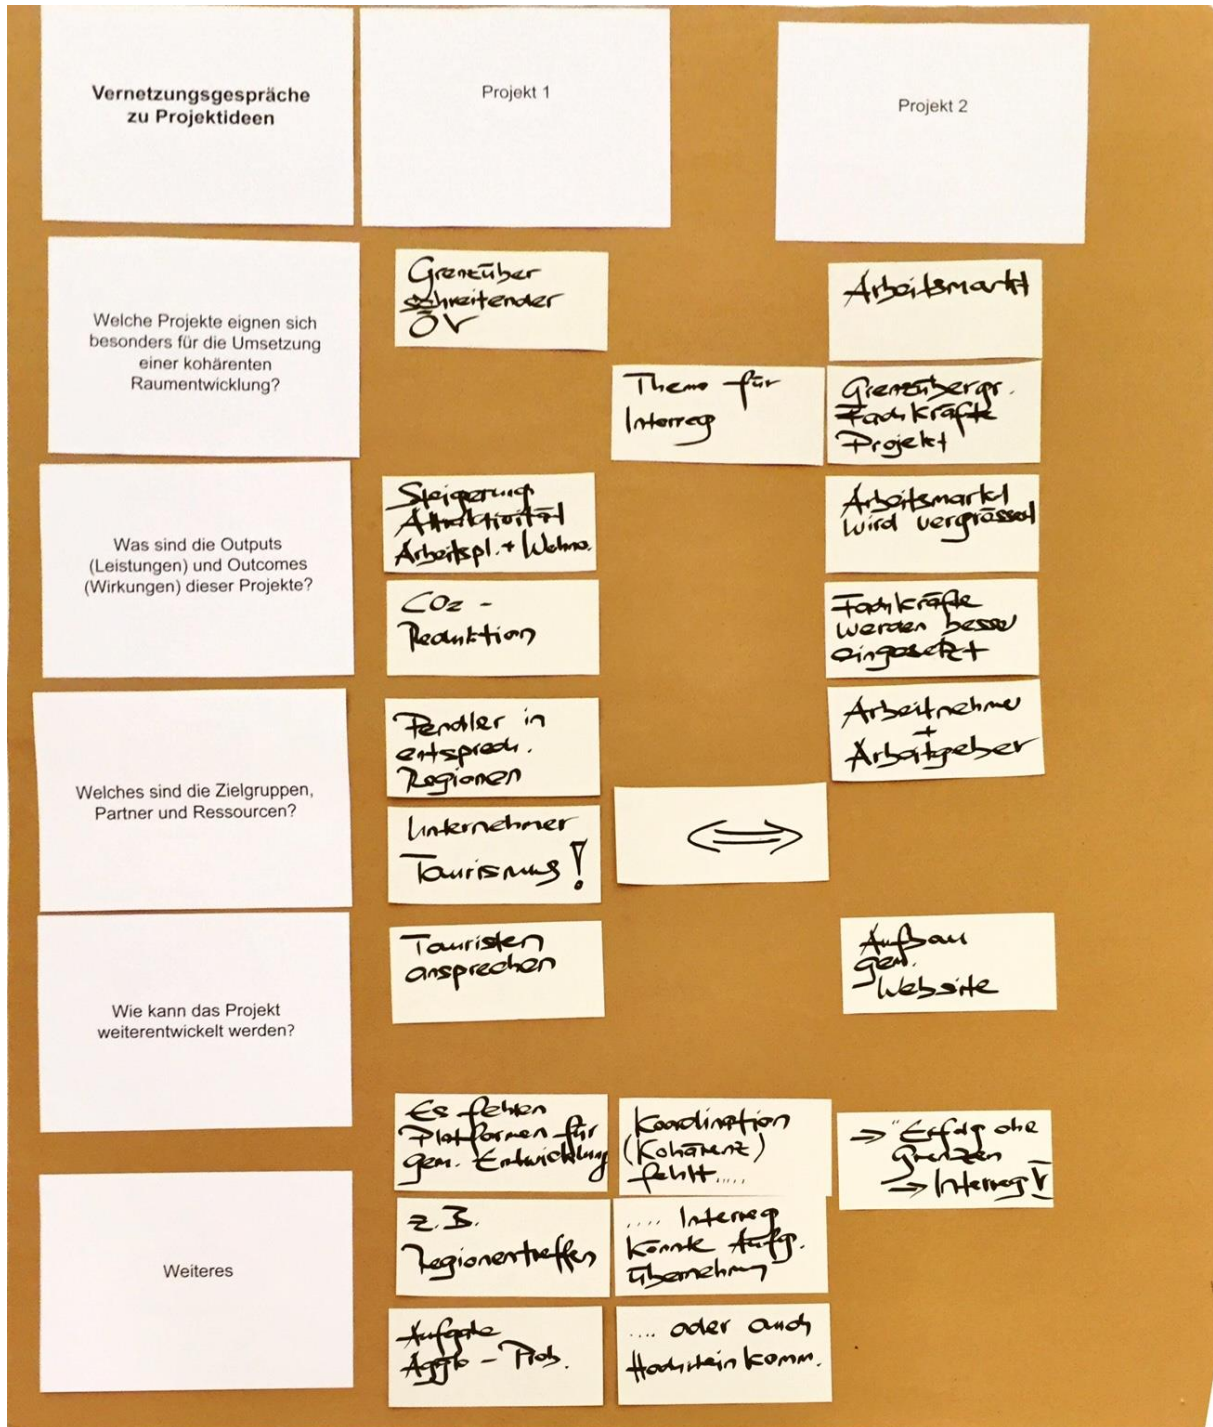 Vernetzungsgespräche
zu Projektideen
Projekt 1
Projekt 2
Welche Projekte eignen sich
besonders für die Umsetzung
einer kohärenten
Raumentwicklung?
Grenzüber
schreitender
ÖV
Thema für
Interreg
Arbeitsmarkt
Grenzübergr.
Fachkräfte
Projekt
Was sind die Outputs
(Leistungen) und Outcomes
(Wirkungen) dieser Projekte?
Steigerung
Attraktivität
Arbeitspl. + Wohno.
CO2 -
Reduktion
Arbeitsmarkt
wird vergrössert
Fachkräfte
werden besser
eingesetzt
Welches sind die Zielgruppen,
Partner und Ressourcen?
Pendler in
entsprech.
Regionen
Unternehmer
Tourismus!
⇔
Arbeitnehmer
+
Arbeitgeber
Wie kann das Projekt
weiterentwickelt werden?
Touristen
ansprechen
Aufbau
gem.
Website
Weiteres
Es fehlen
Platformen für
gem. Entwicklung
z.B.
Regionentreffen
Aufgabe
Agglo - Prob.
Koordination
(Kohärenz)
fehlt.....
.... Interreg
könnte Aufg.
übernehmen
.... oder auch
Hochrhein komm.
⇒ "Erfolg ohne
Grenzen
⇒ Interreg V